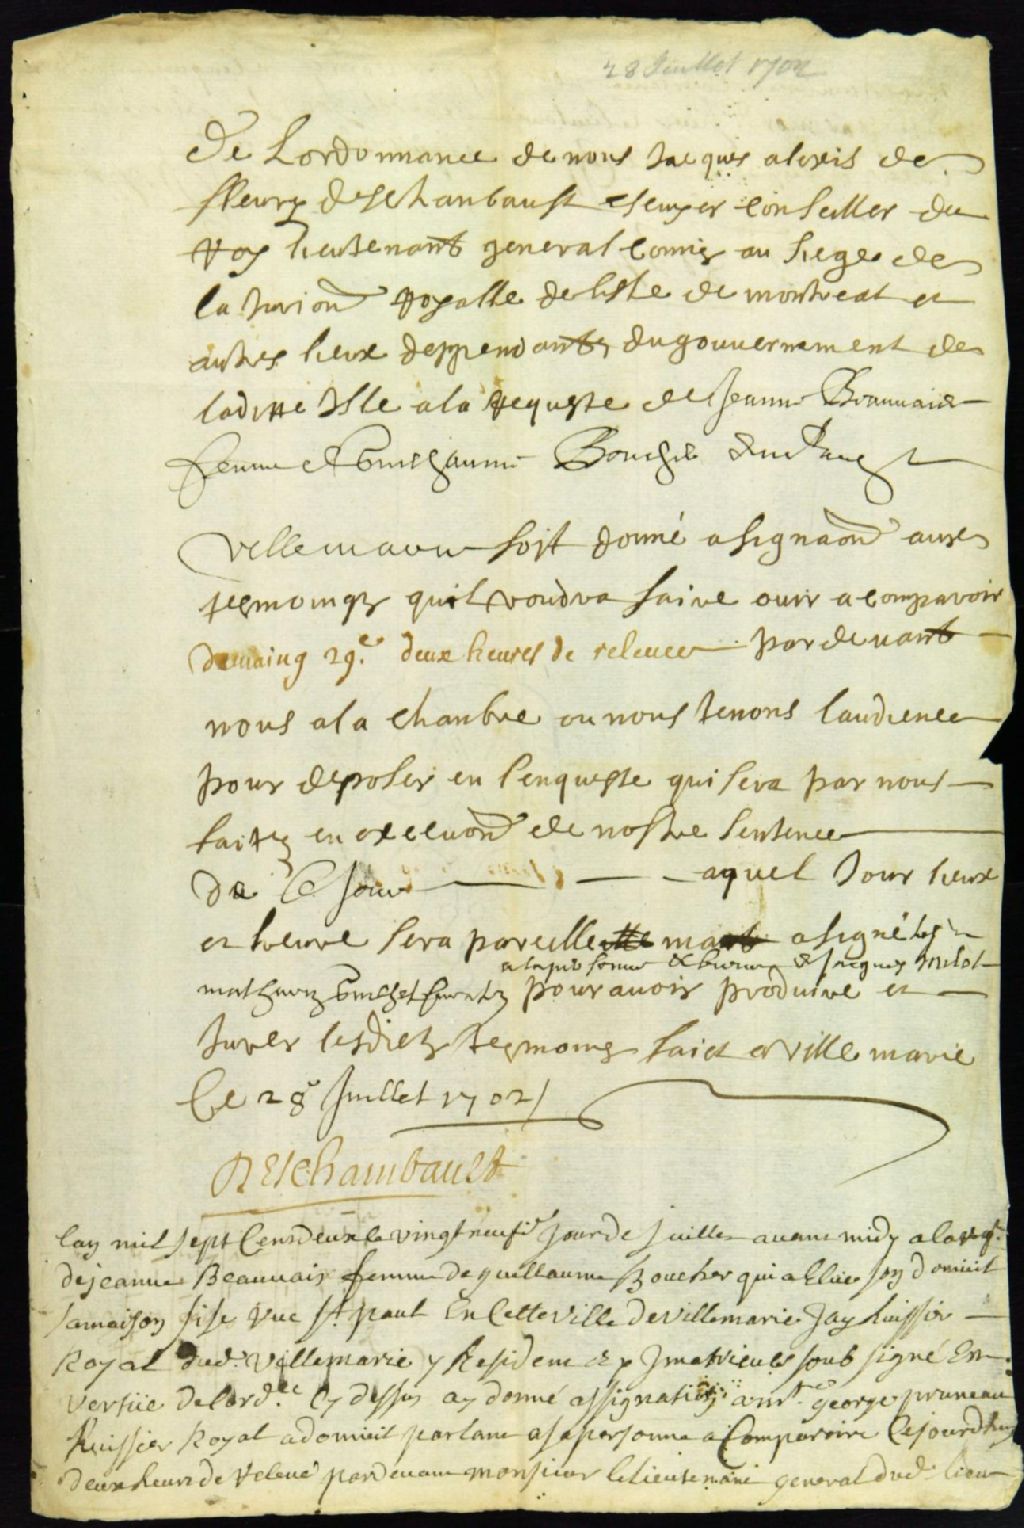 28 Juillet 1702
De Lordonnance de nous Jacques alexis de
fleury deschanbaust escuyer conseiller du
Roy lieutenant general commis au siege de
la Jurion Royalle de lisle de montreal et
autres lieux deppendants du gouvernement de
laditte Isle a la requeste de Jeanne Beauvais
femme de Guillaume Boucher
Villemarie soit donné asignaon aux
tesmoings quil voudra faire ouir a comparoir
demaing 29e deux heures de relevee pardevant
nous a la chanbre ou nous tenons laudience
pour deposer en lenqueste qui sera par nous
faitte en execuon de nostre sentence
de ce jour aquel Jour lieux
et heure sera pareillement asigné
a la femme & Jacques Milot
mathurin Guillet pour avoir produire et
Jurer lesdicts tesmoins faict a Ville marie
Ce 28e Juillet 1702
DEsChambault
Lan mil sept Cens deux le vingt neufe jour de Juillet avant midy a la reqte
de jeanne Beauvais femme de guillaume Boucher qui a Eslue son domicil
sa maison sise rue st paul En Cette Ville de Villemarie Jay huissier
Royal dud. Villemarie y Resident & y Jmatriculé soub signé En
vertüe de lord.ce Cy dessus ay donné assignation a mr. george pruneau
huissier Royal a domicil parlant a sa personne a Comparoire Cejourdhuy
deux heure de relevé pardevant monsieur le lieutenant general dud. lieu